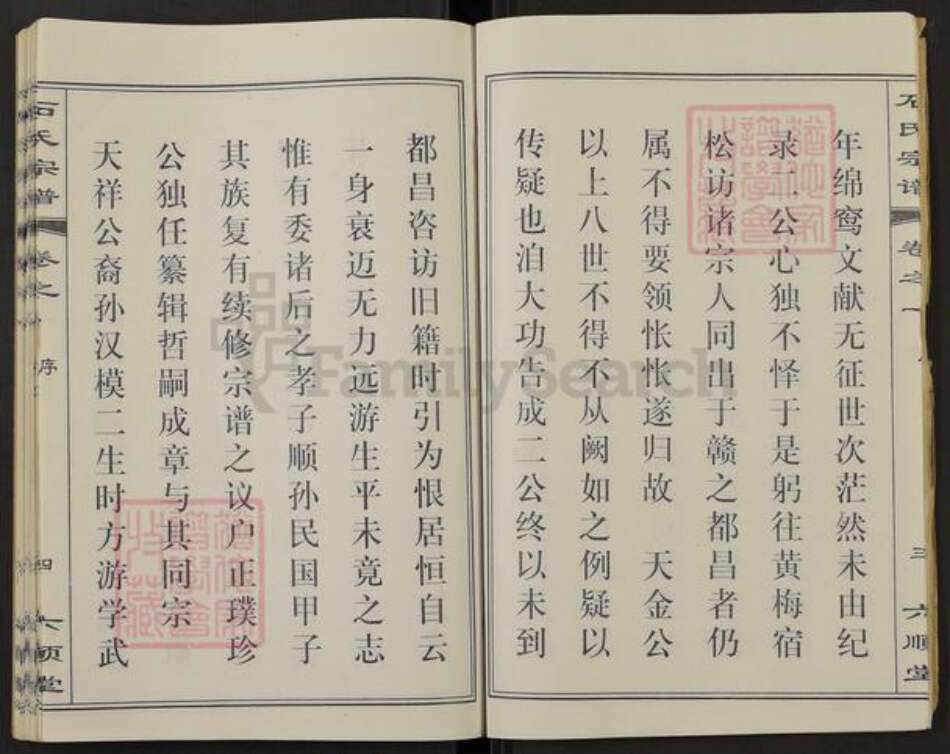 石氏宗谱 卷之一 三 六顺堂
年绵鸾文献无征世次茫然未由纪
录二公心独不怿于是躬往黄梅宿
松访诸宗人同出于赣之都昌者仍
属不得要领怅怅遂归故 天金公
以上八世不得不从阙如之例疑以
传疑也洎大功告成二公终以未到
都昌咨访旧籍时引为恨居恒自云
一身衰迈无力远游生平未竟之志
惟有委诸后之孝子顺孙民国甲子
其族复有续修宗谱之议户正璞珍
公独任纂辑哲嗣成章与其同宗
天祥公裔孙汉模二生时方游学武
石氏宗谱 卷之一 序 四 六顺堂
FamilySearch